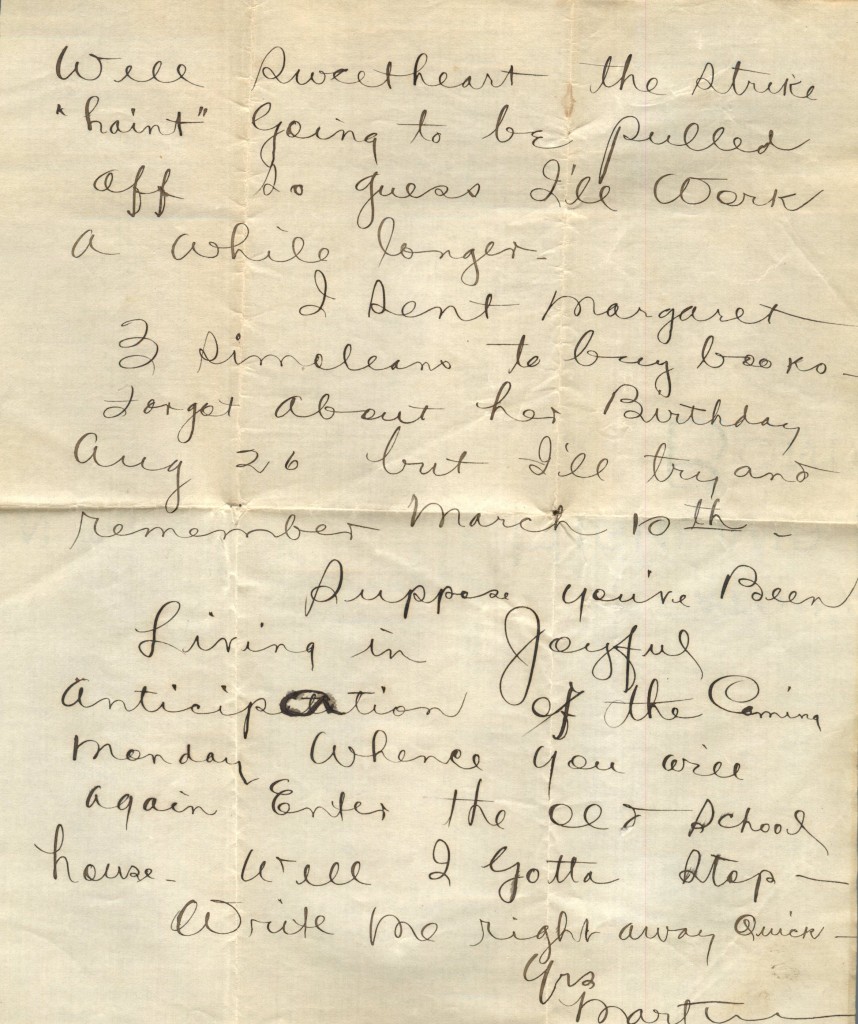 Well Sweetheart the strike
"haint" Going to be pulled
off so guess I'll Work
a while longer.
I sent Margaret
3 simoleans to buy books -
Forgot About her Birthday
Aug 26 but I'll try and
remember March 10th -
Suppose you've Been
Living in Joyful
Anticipation of the Coming
Monday Whence you will
again Enter the old school
house - Well I Gotta stop -
Write me right away Quick -
Yrs
Martin